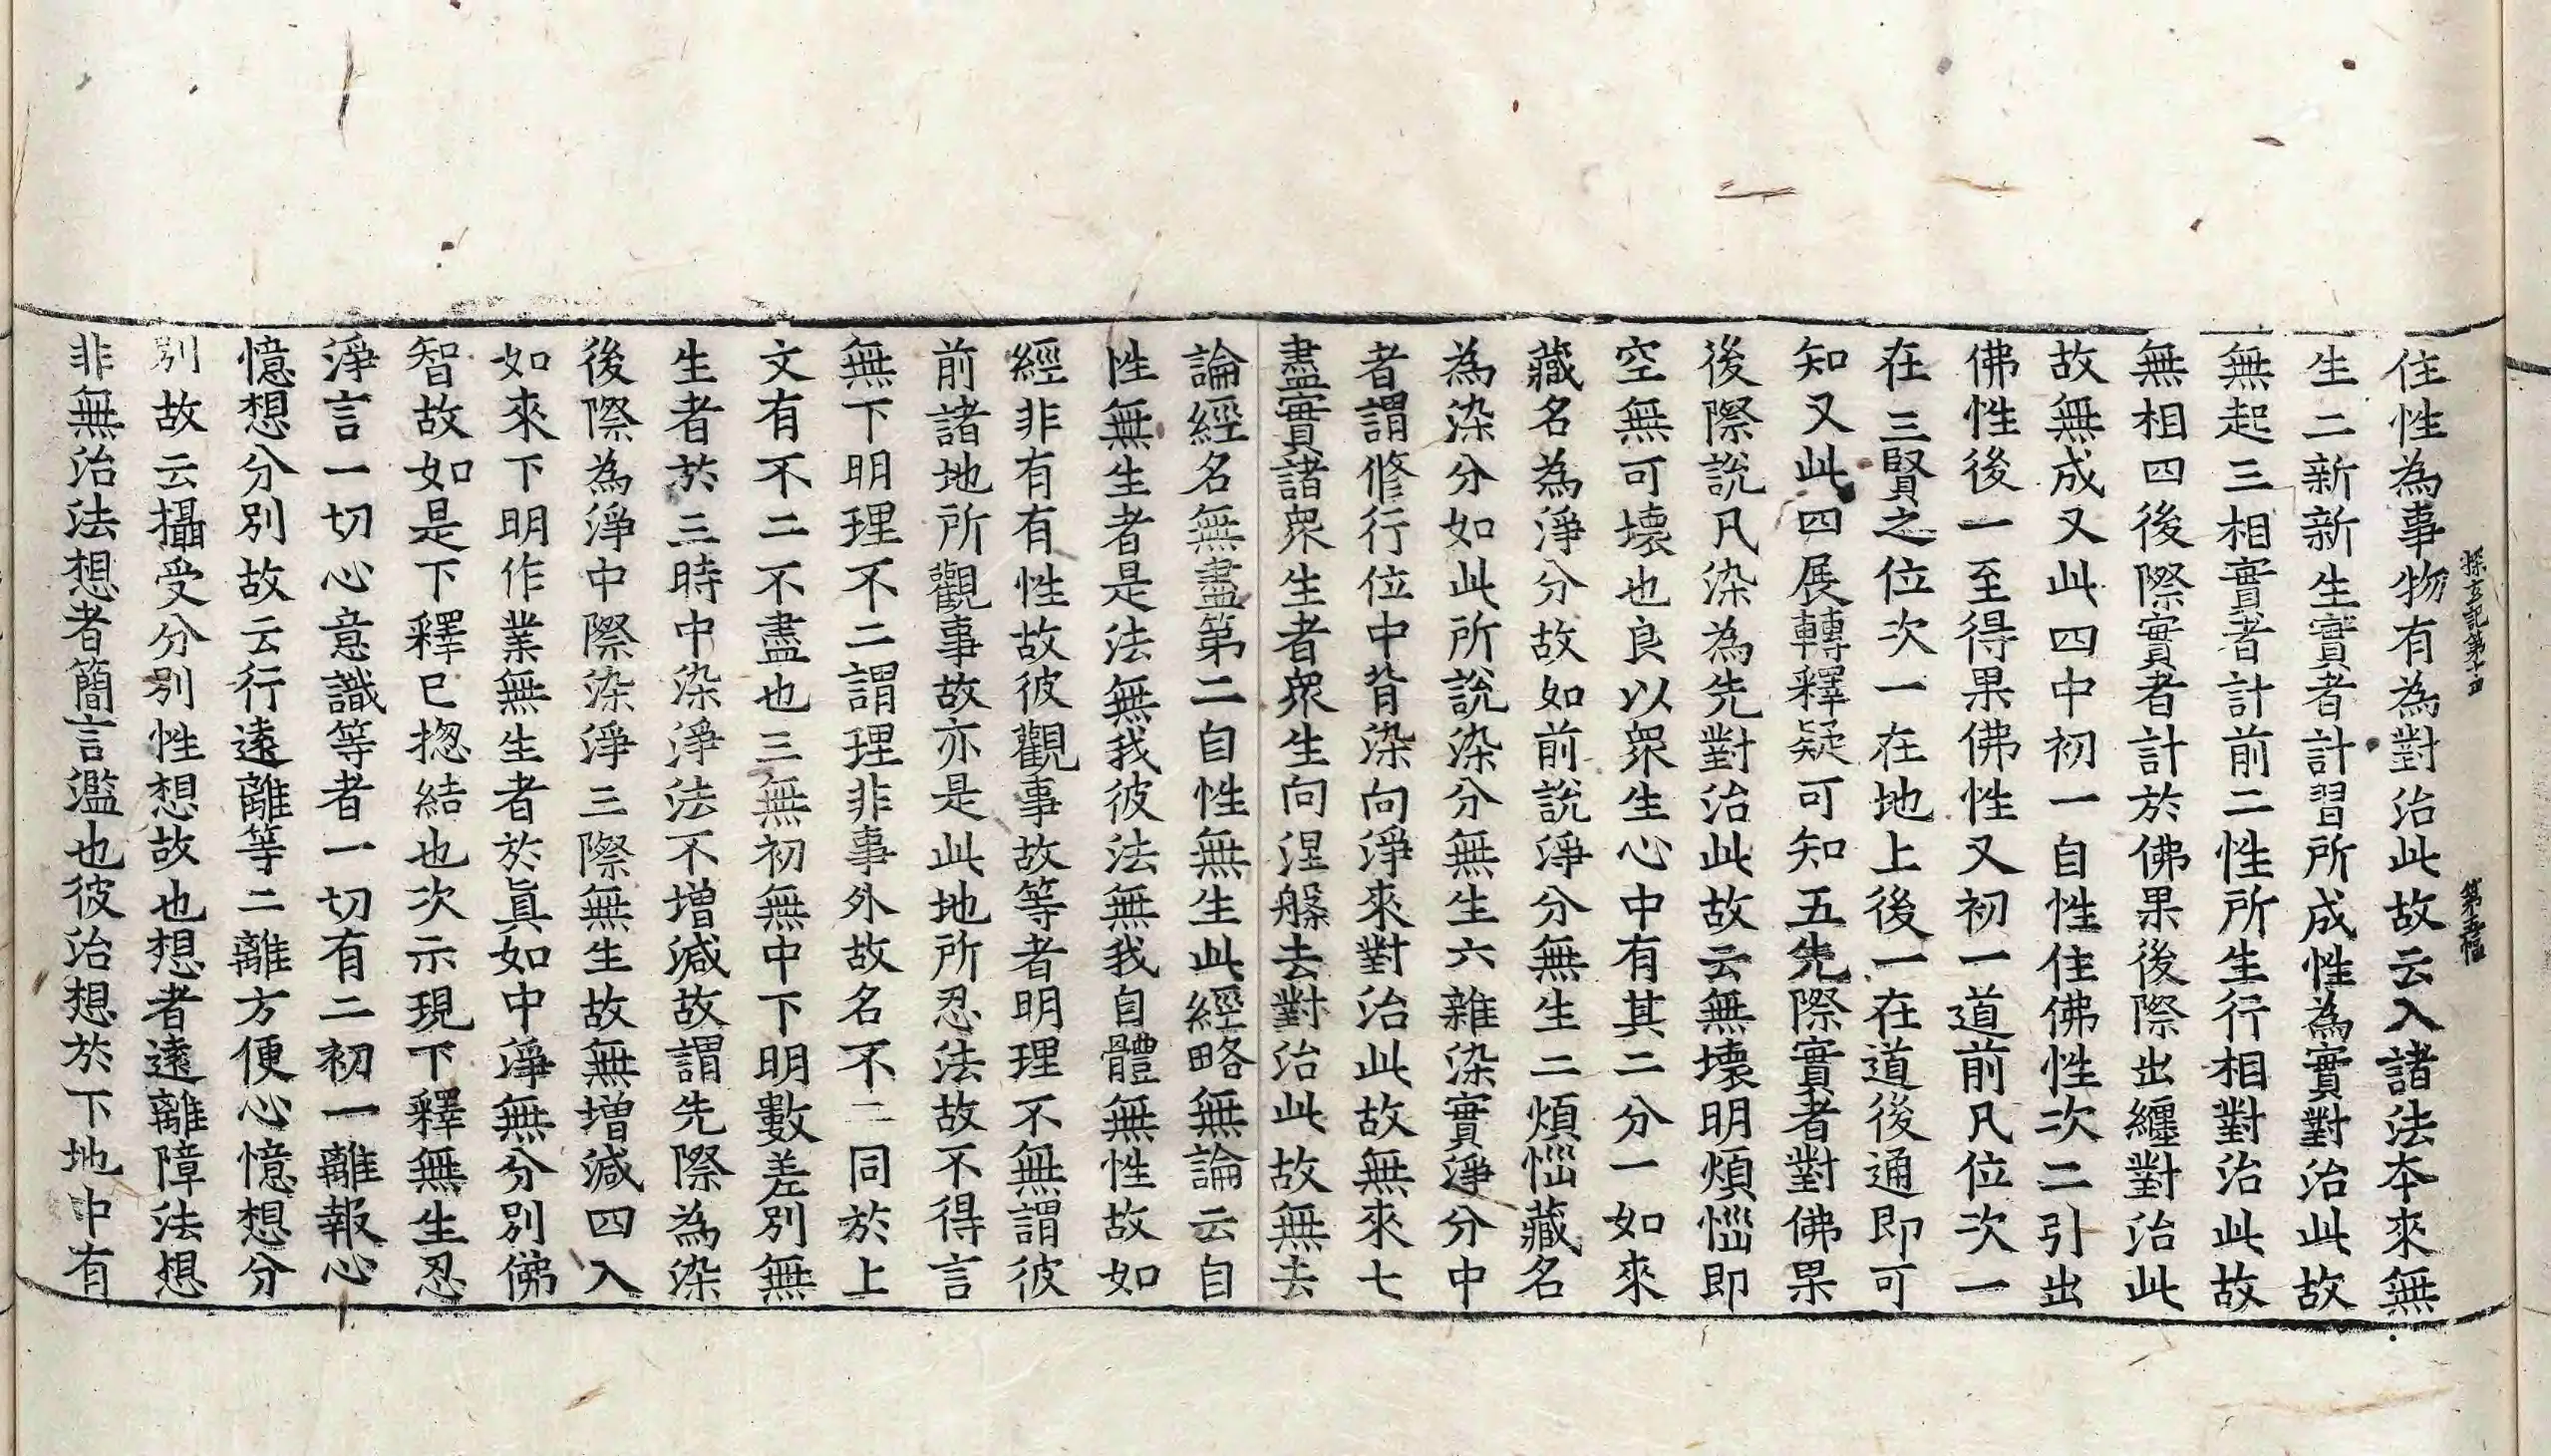 探玄記第十四　第五幅
住性為事物有為對治此故云入諸法本來無
生二新新生實者計習所成性為實對治此故
無起三相實者計前二性所生行相對治此故
無相四後際實者計於佛果後際出纏對治此
故無成又此四中初一自性住佛性次二引出
佛性後一至得果佛性又初一道前凡位次一
在三賢之位次一在地上後一在道後通即可
知又此四展轉釋疑可知五先際實者對佛果
後際說凡染為先對治此故云無壞明煩惱即
空無可壞也良以眾生心中有其二分一如來
藏名為淨分故如前說淨分無生二煩惱藏名
為染分如此所說染分無生六雜染實淨分中
者謂修行位中背染向淨來對治此故無來七
盡實諸眾生者眾生向涅槃去對治此故無去
論經名無盡第二自性無生此經略無論云自
性無生者是法無我彼法無我自體無性故如
經非有有性故彼觀事故等者明理不無謂彼
前諸地所觀事故亦是此地所忍法故不得言
無下明理不二謂理非事外故名不二同於上
文有不二不盡也三無初無中下明數差別無
生者於三時中染淨法不增減故謂先際為染
後際為淨中際染淨三際無生故無增減四入
如來下明作業無生者於真如中淨無分別佛
智故如是下釋已揔結也次示現下釋無生忍
淨言一切心意識等者一切有二初一離報心
憶想分別故云行遠離等二離方便心憶想分
別故云攝受分別性想故也想者遠離障法想
非無治法想者簡言濫也彼治想於下地中有